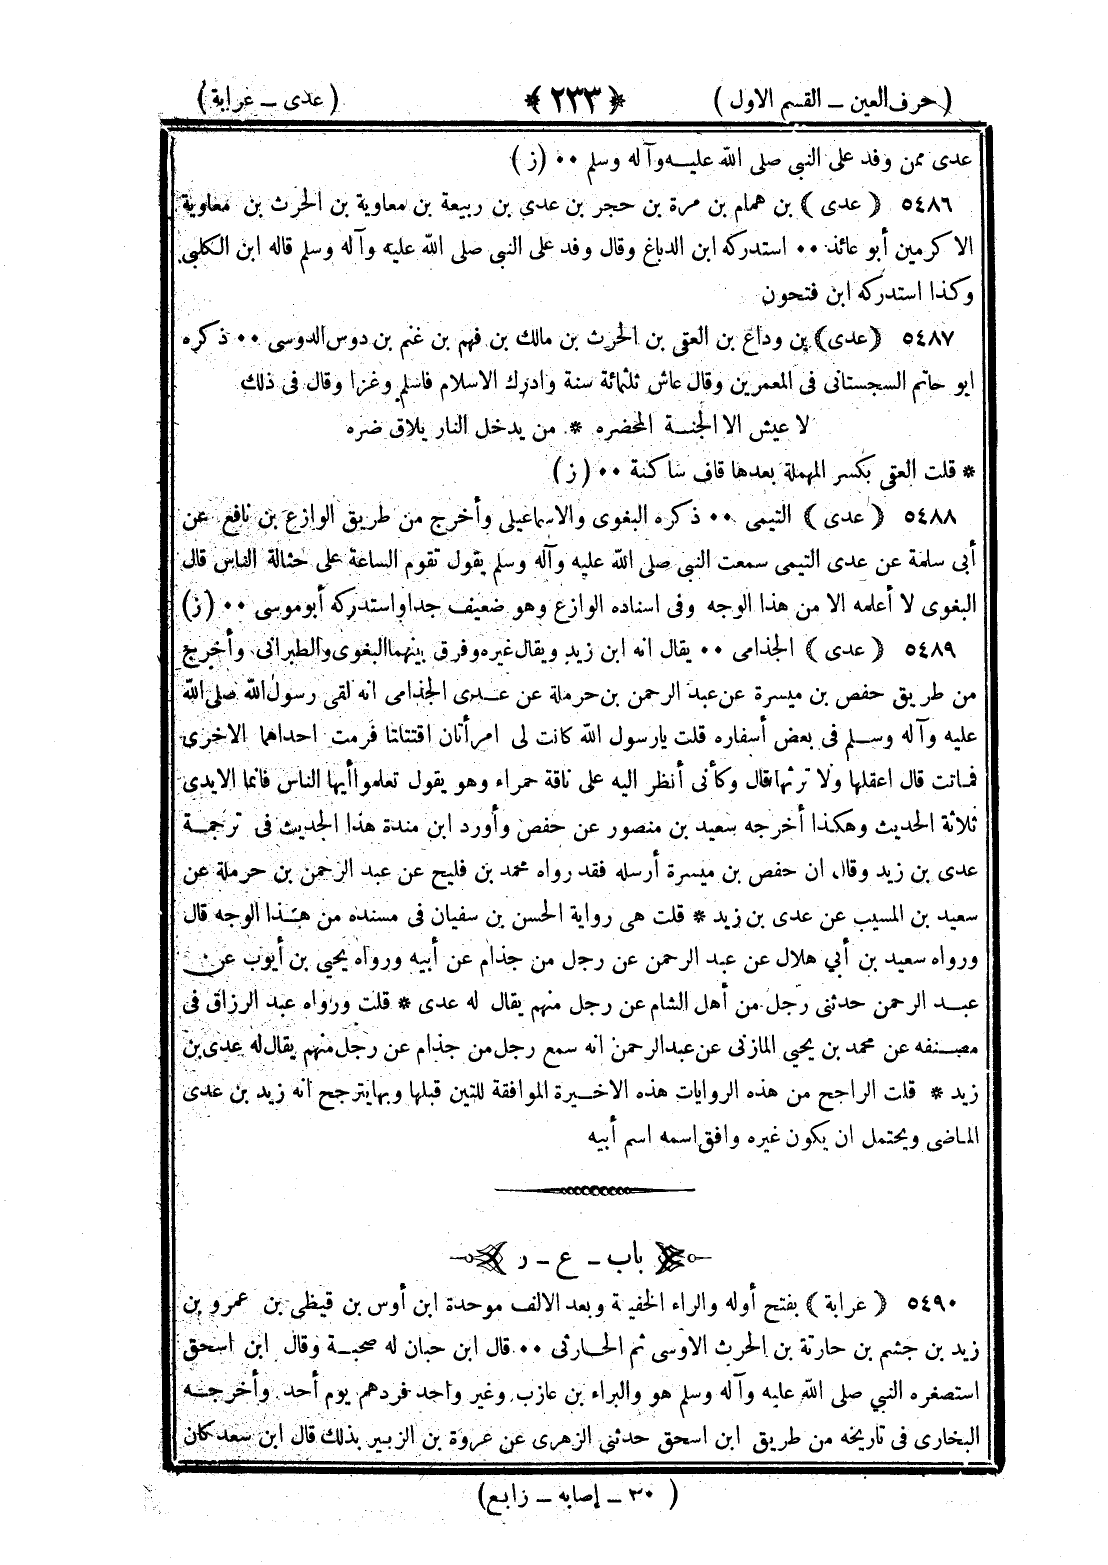 (حرف العين ـ القسم الاول)
﴿ ٢٣٣ ﴾
(عدى ـ عرابة)
عدى ممن وفد على النبى صلى الله عليه وآله وسلم ٠٠ (ز)
٥٤٨٦ ﴿ عدى ﴾ بن همام بن مرة بن حجر بن عدي بن ربيعة بن معاوية بن الحرث بن معاوية
الاكرمين أبو عائذ ٠٠ استدركه ابن الدباغ وقال وفد على النبى صلى الله عليه وآله وسلم قاله ابن الكلبى
وكذا استدركه ابن فتحون
٥٤٨٧ ﴿ عدى ﴾ بن وداع بن العقى بن الحرث بن مالك بن فهم بن غنم بن دوس الدوسى ٠٠ ذكره
ابو حاتم السجستانى فى المعمرين وقال عاش ثلثمائة سنة وادرك الاسلام فاسلم وغزا وقال فى ذلك
لا عيش الا الجنة المخضره * من يدخل النار يلاق ضره
* قلت العقى بكسر المهملة بعدها قاف ساكنة ٠٠ (ز)
٥٤٨٨ ﴿ عدى ﴾ التيمى ٠٠ ذكره البغوى والاسماعيلى وأخرج من طريق الوازع بن نافع عن
أبى سلمة عن عدى التيمى سمعت النبى صلى الله عليه وآله وسلم يقول تقوم الساعة على حثالة الناس قال
البغوى لا أعلمه الا من هذا الوجه وفى اسناده الوازع وهو ضعيف جدا واستدركه أبو موسى ٠٠ (ز)
٥٤٨٩ ﴿ عدى ﴾ الجذامى ٠٠ يقال انه ابن زيد ويقال غيره وفرق بينهما البغوى والطبرانى وأخرج
من طريق حفص بن ميسرة عن عبد الرحمن بن حرملة عن عدى الجذامى انه لقى رسول الله صلى الله
عليه وآله وسلم فى بعض أسفاره قلت يارسول الله كانت لى امرأتان اقتتلتا فرمت احداهما الاخرى
فماتت قال اعقلها ولا ترثها قال وكأنى أنظر اليه على ناقة حمراء وهو يقول تعلموا أيها الناس فانما الايدى
ثلاثة الحديث وهكذا أخرجه سعيد بن منصور عن حفص وأورد ابن مندة هذا الحديث فى ترجمة
عدى بن زيد وقال ان حفص بن ميسرة أرسله فقد رواه محمد بن فليح عن عبد الرحمن بن حرملة عن
سعيد بن المسيب عن عدى بن زيد * قلت هى رواية الحسن بن سفيان فى مسنده من هذا الوجه قال
ورواه سعيد بن أبي هلال عن عبد الرحمن عن رجل من جذام عن أبيه ورواه يحيي بن أيوب عن
عبد الرحمن حدثنى رجل من أهل الشام عن رجل منهم يقال له عدى * قلت ورواه عبد الرزاق فى
مصنفه عن محمد بن يحيي المازنى عن عبد الرحمن انه سمع رجل من جذام عن رجل منهم يقال له عدى بن
زيد * قلت الراجح من هذه الروايات هذه الاخيرة الموافقة للتين قبلها وبها يترجح انه زيد بن عدى
الماضى ويحتمل ان يكون غيره وافق اسمه اسم أبيه
باب ـ ع ـ ر
٥٤٩٠ ﴿ عرابة ﴾ بفتح أوله والراء الخفية وبعد الالف موحدة ابن أوس بن قيظى بن عمرو بن
زيد بن جشم بن حارثة بن الحرث الاوسى ثم الحارثى ٠٠ قال ابن حبان له صحبة وقال ابن اسحق
استصغره النبي صلى الله عليه وآله وسلم هو والبراء بن عازب وغير واحد فردهم يوم أحد وأخرجه
البخارى فى تاريخه من طريق ابن اسحق حدثنى الزهرى عن عروة بن الزبير بذلك قال ابن سعد كان
(٣٠ ـ إصابه ـ رابع)